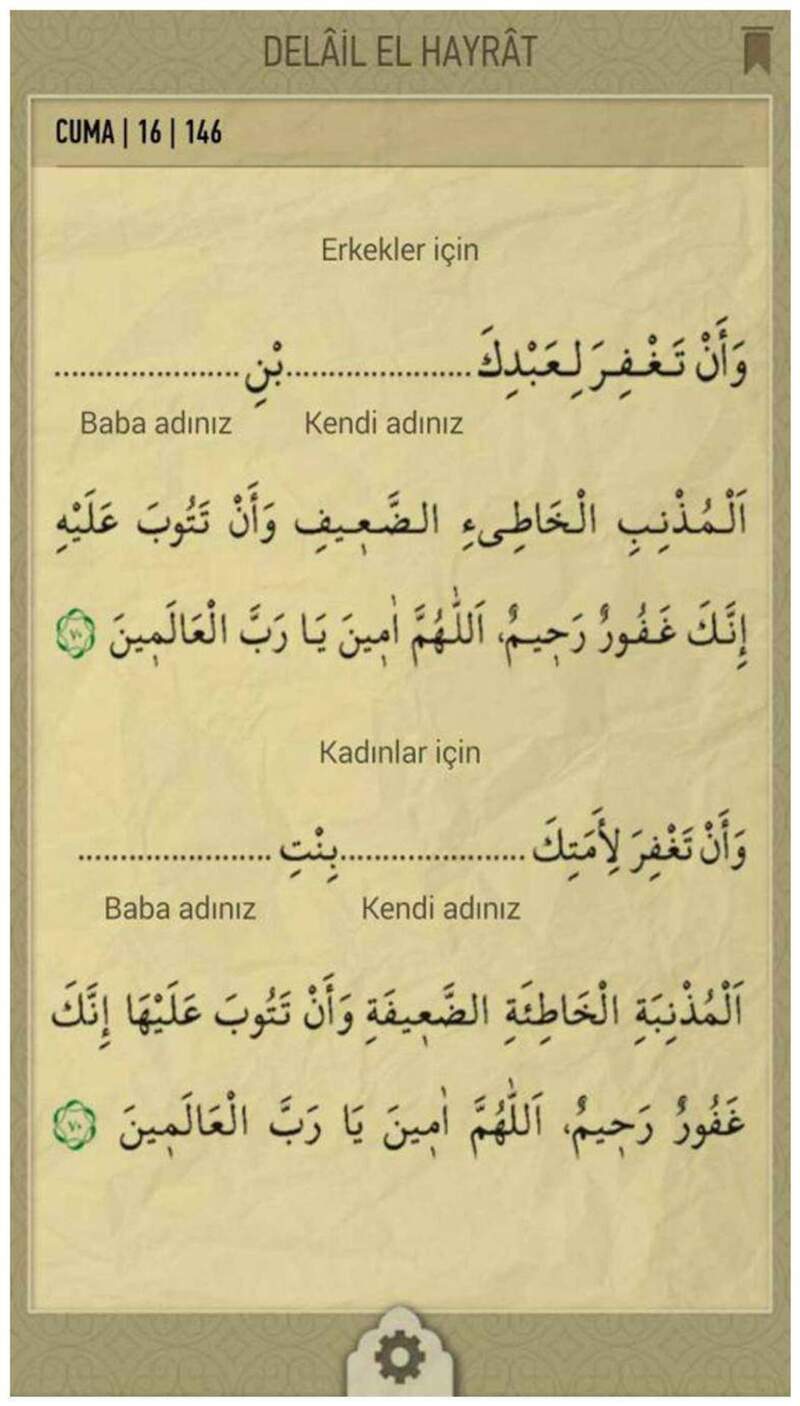 DELÂİL EL HAYRÂT
CUMA | 16 | 146
Erkekler için
وَأَنْ تَغْفِرَ لِعَبْدِكَ......................بْنِ......................
Kendi adınız Baba adınız
اَلْمُذْنِبِ الْخَاطِىءِ الضَّعٖيفِ وَأَنْ تَتُوبَ عَلَيْهِ
إِنَّكَ غَفُورٌ رَحٖيمٌ، اَللّٰهُمَّ اٰمٖينَ يَا رَبَّ الْعَالَمٖينَ ٧٠
Kadınlar için
وَأَنْ تَغْفِرَ لِأَمَتِكَ......................بِنْتِ ......................
Kendi adınız Baba adınız
اَلْمُذْنِبَةِ الْخَاطِئَةِ الضَّعٖيفَةِ وَأَنْ تَتُوبَ عَلَيْهَا إِنَّكَ
غَفُورٌ رَحٖيمٌ، اَللّٰهُمَّ اٰمٖينَ يَا رَبَّ الْعَالَمٖينَ ٧٠